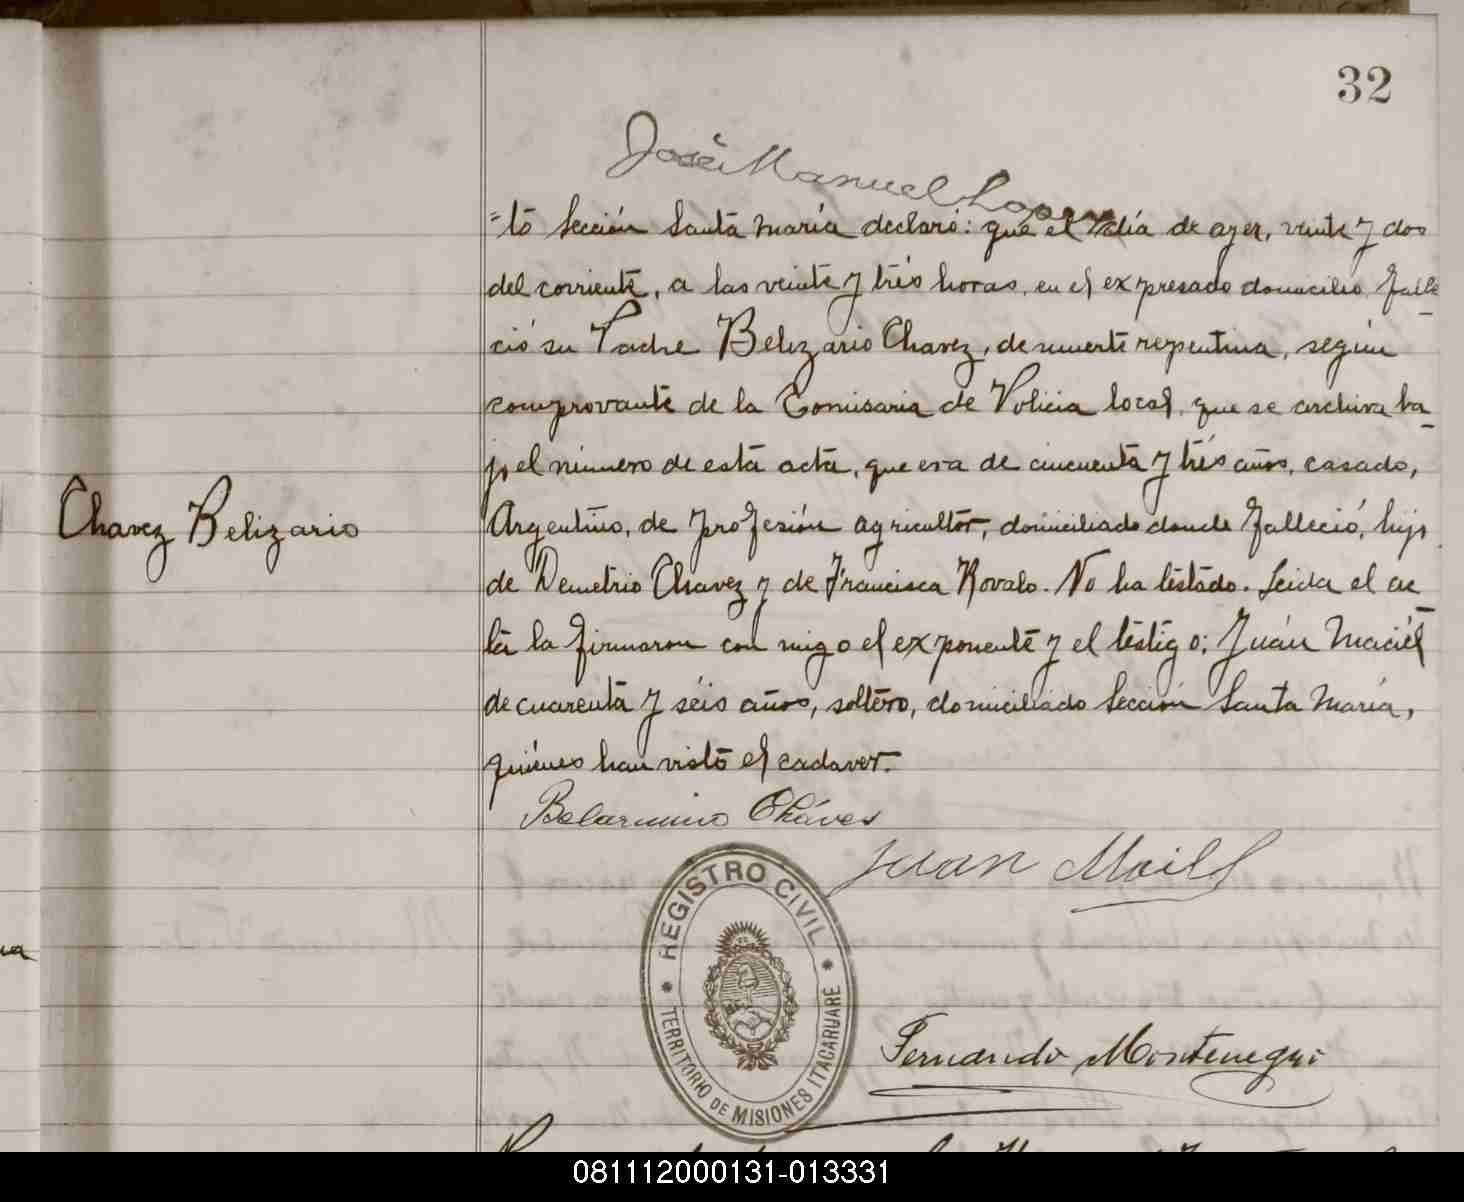 32
José Manuel Lopez
=to Sección Santa María declaró: que el día de ayer, veinte y dos
del corriente, a las veinte y tres horas, en el expresado domicilio, falle
ció su Padre Belizario Chavez, de muerte repentina, según
comprovante de la Comisaria de Policia local, que se archiva ba_
jo el número de esta acta, que era de cincuenta y trés años, casado,
Argentino, de profesión agricultor, domiciliado donde falleció, hijo
Chavez Belizario
de Demetrio Chavez y de Francisca Rovalo. No ha testado. Leida el ac
ta la firmaron con migo el exponente y el testigo: Juán Maciél
de cuarenta y séis años, soltero, domiciliado Sección Santa María,
quiénes han visto el cadaver.
Belarmino Cháves
Juan
REGISTRO CIVIL
TERRITORIO DE MISIONES ITACARUARE
Fernando Montenegro
081112000131-013331